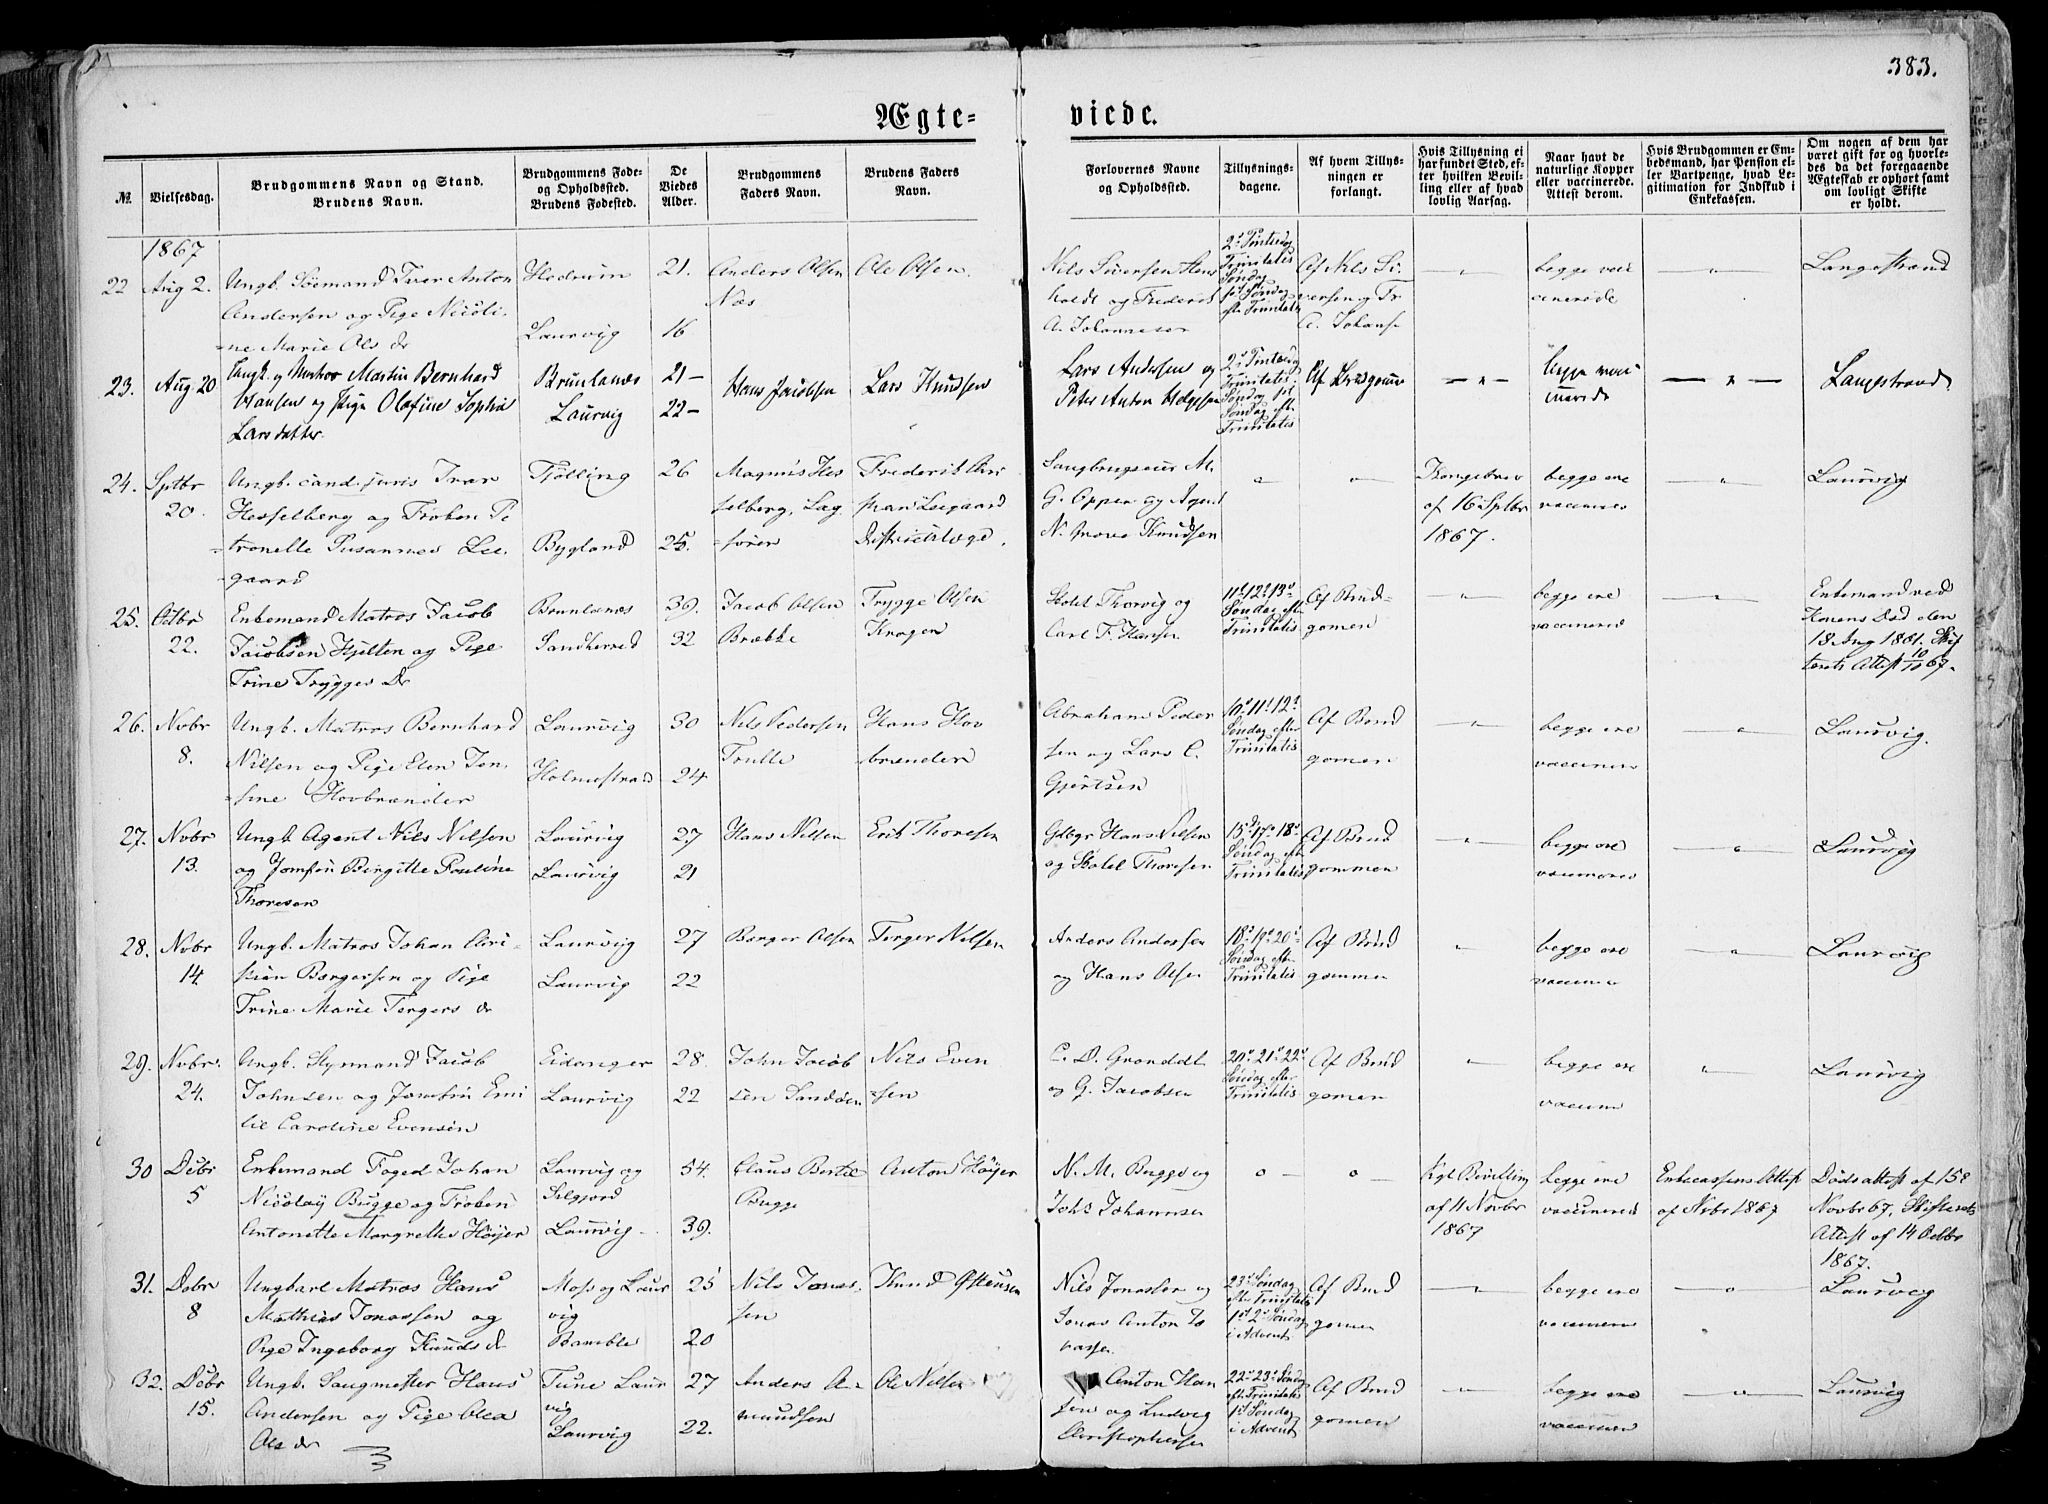 383.
Ægte- viede.
№
Vielsesdag.
Brudgommens Navn og Stand.
Brudens Navn.
Brudgommens Føde-
og Opholdssted.
Brudens Fødested.
De
Viedes
Alder.
Brudgommens
Faders Navn.
Brudens Faders
Navn.
Forlovernes Navne
og Opholdssted.
Tillysnings-
dagene.
Af hvem Tillys-
ningen er
forlangt.
Hvis Tillysning ei
har fundet Sted, ef-
ter hvilken Bevil-
ling eller af hvad
lovlig Aarsag.
Naar havt de
naturlige Kopper
eller vaccinerede.
Attest derom.
Hvis Brudgommen er Em-
bedsmand, har Pension el-
ler Vartpenge, hvad Le-
gitimation for Indskud i
Enkekassen.
Om nogen af dem har
været gift før og hvorle-
des da det foregaaende
Ægteskab er ophørt samt
om lovligt Skifte
er holdt.
1867
22 Aug 2.
Ungb. Søemand Iver Anton
Andersen og Pige Nicoli-
=ne Marie Ols dr
Hedrum
Laurvig
21.
16
Anders Olsen
Næs
Ole Olsen.
Nils Siversen
holdt og Frederik
A. Johannesen
Trinitatis
Søndag
Af Nils Si
versen og Fr
A. Johans
begge vac
cinerede
Langestrand
23. Aug. 20
Ungk. og Matros Martin Bernhard
Hansen og Pige Olafine Sophie
Larsdatter.
Brunlanæs
Laurvig
21-
22-
Hans Jacobsen
Lars Knudsen
Lars Andersen og
Peter Anton Helgesen
Trinitatis
Søndag eft
Trinitatis
Af Brudgommen
begge vacci-
nerede
Langestrand
24. Sptbr
20.
Ungb. cand. juris Iver
Hesselberg og Frøken Pe
=tronelle Susannes Lee
=gaard
Tjølling
Bygland
26
25.
Magnus Hes
selberg, Sag
=fører
Frederik Chri
stian Leegaard
Districtslæge.
Saugbrugseier M.
G. Oppen og Agent
N. Grove Knudsen
Kongebrev
af 16 Sptbr
1867.
begge ere
vaccineres
Laurvig
25. Octbr
22.
Enkemand Matros Jacob
Jacobsen Hjelten og Pige
Trine Trygges Dr
Brunlanæs
Sandherred
39.
32
Jacob Olsen
Brække
Trygge Olsen
Krogen
Skolel Thorvig og
Carl F. Hansen
11te 12te 13de
Søndag eft
Trinitatis
Af Brud-
gomen
begge ere
vaccinered
Enkemand ved
Konens Død den
18. Aug 1861. Skif
terets Attest 10/10 67.
26. Novbr
8.
Ungb. Matros Bernhard
Nilsen og Pige Elen Jen
=sine Hovbrænder
Laurvig
Holmestrand
30
24
Nils Pedersen
Trulle
Hans Hov
brænder
Abraham Peder
sen og Lars C.
Gjertsen
10de 11te 12te
Søndag efter
Trinitatis
Af Brud
gomen
begge ere
vaccineres
Laurvig.
27. Novbr
13.
Ungb Agent Nils Nilsen
og Jomfru Birgitte Pauline
Thoresen
Laurvig
Laurvig
27
21
Hans Nilsen
Erik Thoresen
Gdbgr Hans Nilsen
og Skolel Thoresen
15de 17de 18de
Søndag eft
Trinitatis
Af Brud
gommen
begge ere
vaccineres
Laurvig
28. Novbr
14.
Ungb. Matros Johan Chri-
stian Børgersen og Pige
Trine Marie Tergers dr
Laurvig
Laurvig
27
22
Børger Olsen
Terger Nilsen
Anders Andersen
og Hans Olsen
18de 19de 20de
Søndag eft
Trinitatis
Af Brud
gommen
begge ere
vaccine
Laurvig
29. Novbr.
24.
Ungb. Styrmand Jacob
Johnsen og Jomfru Emi
lie Caroline Evensen
Eidanger
Laurvig
28.
22
John Jacob
sen Sandøen
Nils Even
=sen
C. D. Grønddt
og G. Jacobsen
20de 21de 22de
Søndag efter
Trinitatis
Af Brud
gomen
begge ere
vaccine
Laurvig
30 Debr
5
Enkemand Foged Johan
Nicolay Bugge og Frøken
Antonette Margrethe Höyer
Laurvig og
Selgjord
Laurvig
54.
39.
Claus Bertel
Bugge
Anton Höyer
N. M. Bugge og
Johs Johannsen
Kgl Bevilling
af 11 Novbr
1867
begge ere
vaccinered
Enkecassens Attest
af Nvbr 1867
Dødsattest af 15de
Novbr 67, Skifterets
Attest af 14 Octbr
1867.
31. Debr
8
Ungkarl Matros Hans
Mathias Jonassen og
Pige Ingeborg Knuds dr
Moss og Laur
vig
Bamble
25
20
Nils Jonas-
sen
Knud Østensen
Nils Jonassen og
Jonas Anton To
vassen
23de Søndag
eft. Trinitatis
1ste 2den Søndag
i Advent
Af Brud
gomen
begge ere
vaccinere
Laurvig
32. Debr
15.
Ungb. Saugmester Hans
Andersen og Pige Olea
Ols dr
Tune Laur
vig
Laurvig
27
22.
Anders A-
mundsen
Ole Nilsen
Anton Han
sen og Ludvig
Christophersen
22de 23de Søndag
eft. Trinitatis
1ste Søndag
i Advent
Af Brud
gomen
begge ere
vaccinere
Laurvig